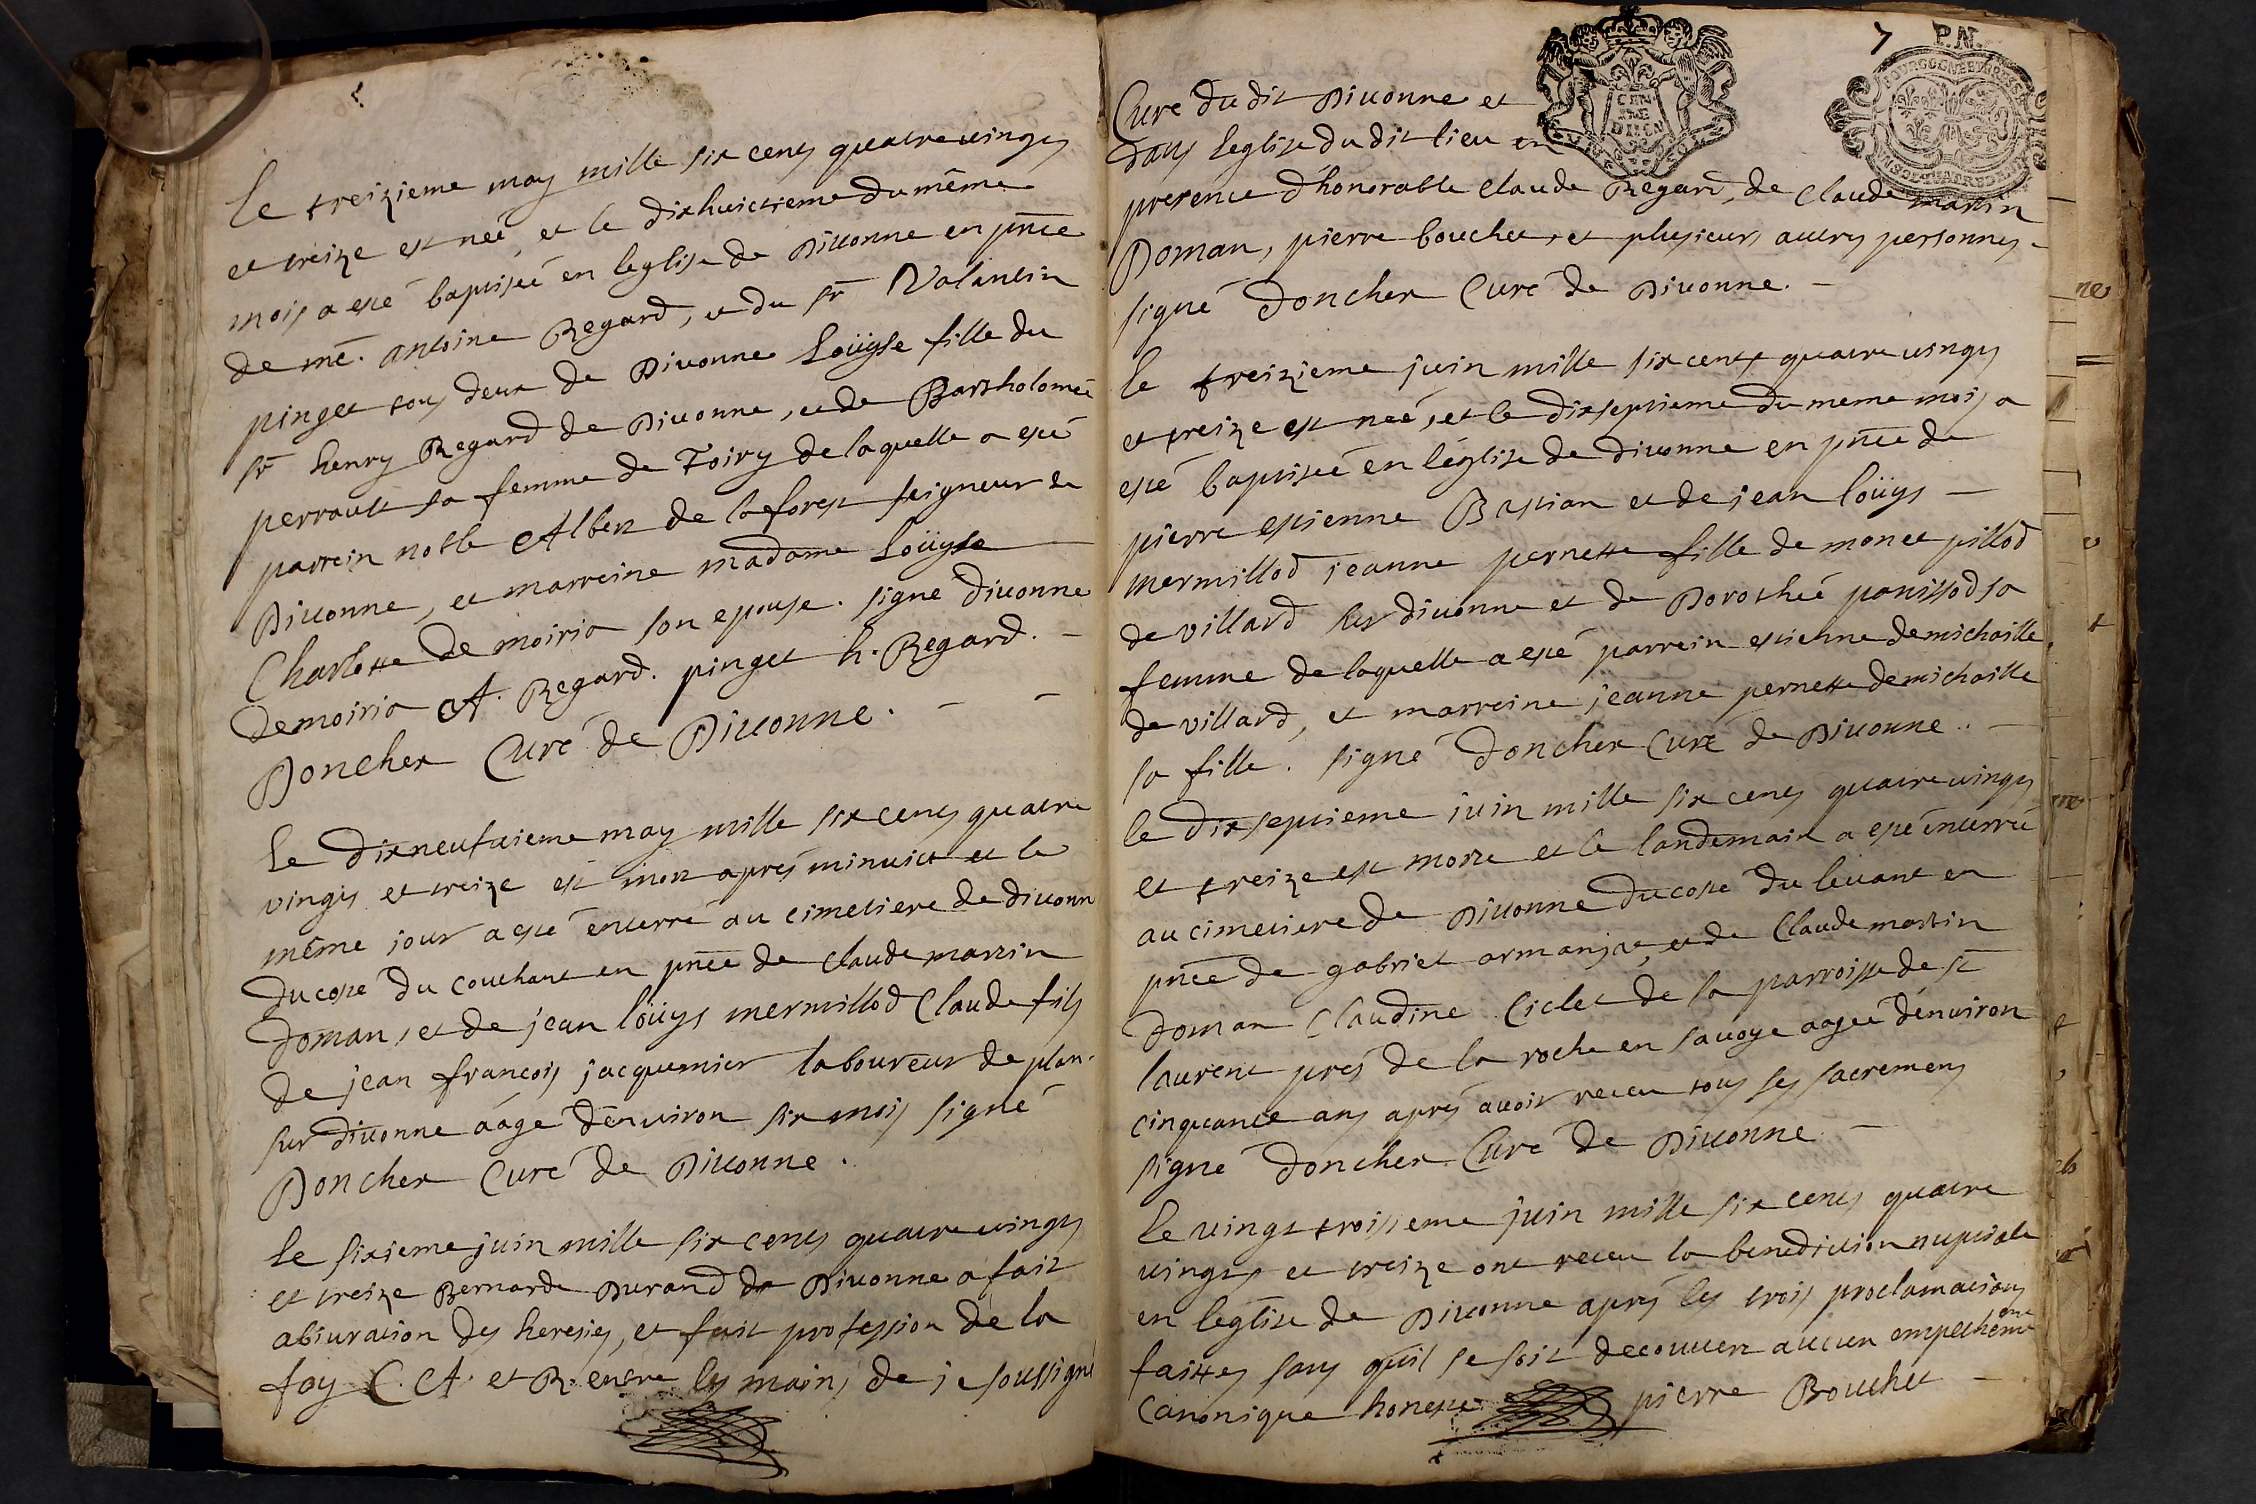 Le treizieme may mille six cens quatre vingts
et treize est neé, et le dixhuictieme du même
mois a esté baptiseé en leglise de Divonne en pñce
de mē. antoine Regard, et du sr Valantin
pinget tous deux de Divonne Loüyse fille du
sr henry Regard de Divonne, et de Bartholomeé
perrault sa femme de Toiry de laquelle a esté
parrein noble Albert de laforest seigneur de
Divonne, et marreine madame Loüyse
Charlotte de moiria son epouse. signé divonne
Demoiria A. Regard. pinget h. Regard. -
Doncher Curé de Divonne. - -
Le dixneufuieme may mille six cens quatre
vingts et treize est mort aprés minuict et le
même jour a esté enterré au cimetiere de divonn
du costé du couchant en pñce de claude martin
Doman, et de jean loüys mermillod Claude fils
de jean françois jacquemier laboureur de plan
sur divonne aágé dénviron six mois signé
Doncher Curé de Divonne.
Le sixieme juin mille six cens quatre vingts
et treize Bernarde Durand de Divonne a fait
abiuration des heresies, et fait profession de la
foy C. A. et R. entre les mains de je soussigné
7 P.N.
BOURGOGNE ET BRESSE
Curé du dit Divonne et
dans leglise du dit lieu en
presence d'honorable claude Regard, de Claude martin
Doman, pierre bouchet, et plusieurs autres personnes -
signé Doncher Curé de Divonne. -
le treizieme juin mille six cents quatre vingts
et treize est neé, et le dixseptieme du meme mois a
esté baptiseé en léglise de divonne en pñce de
pierre estienne Bastian et de jean loüys -
mermillod jeanne pernette fille de monet pillod
de villard sur divonne et de Dorotheé panissod sa
femme de laquelle a esté parrein estienne demichaille
de villard, et marreine jeanne pernette demichaille
sa fille. signé Doncher Curé de Divonne. -
le dixseptieme juin mille six cens quatre vingts
et treize est morte et le landemain a esté énterreé
au cimetiere de Divonne du costé du levant en
pñce de gabriel armanjac, et de Claude martin
Doman Claudine Ciclet de la parroisse de st
laurent prés de la roche en savoye aageé dénviron
cinquante ans aprés avoir receu tous ses sacremens
signé Doncher Curé de Divonne -
Le vingt troisieme juin mille six cens quatre
vingts et treize ont receu la benediction nuptiale
en leglise de Divonne aprés les trois proclamations
faittes sans quil se soit decouvert aucun empechement
canonique honeste pierre Bouchet -